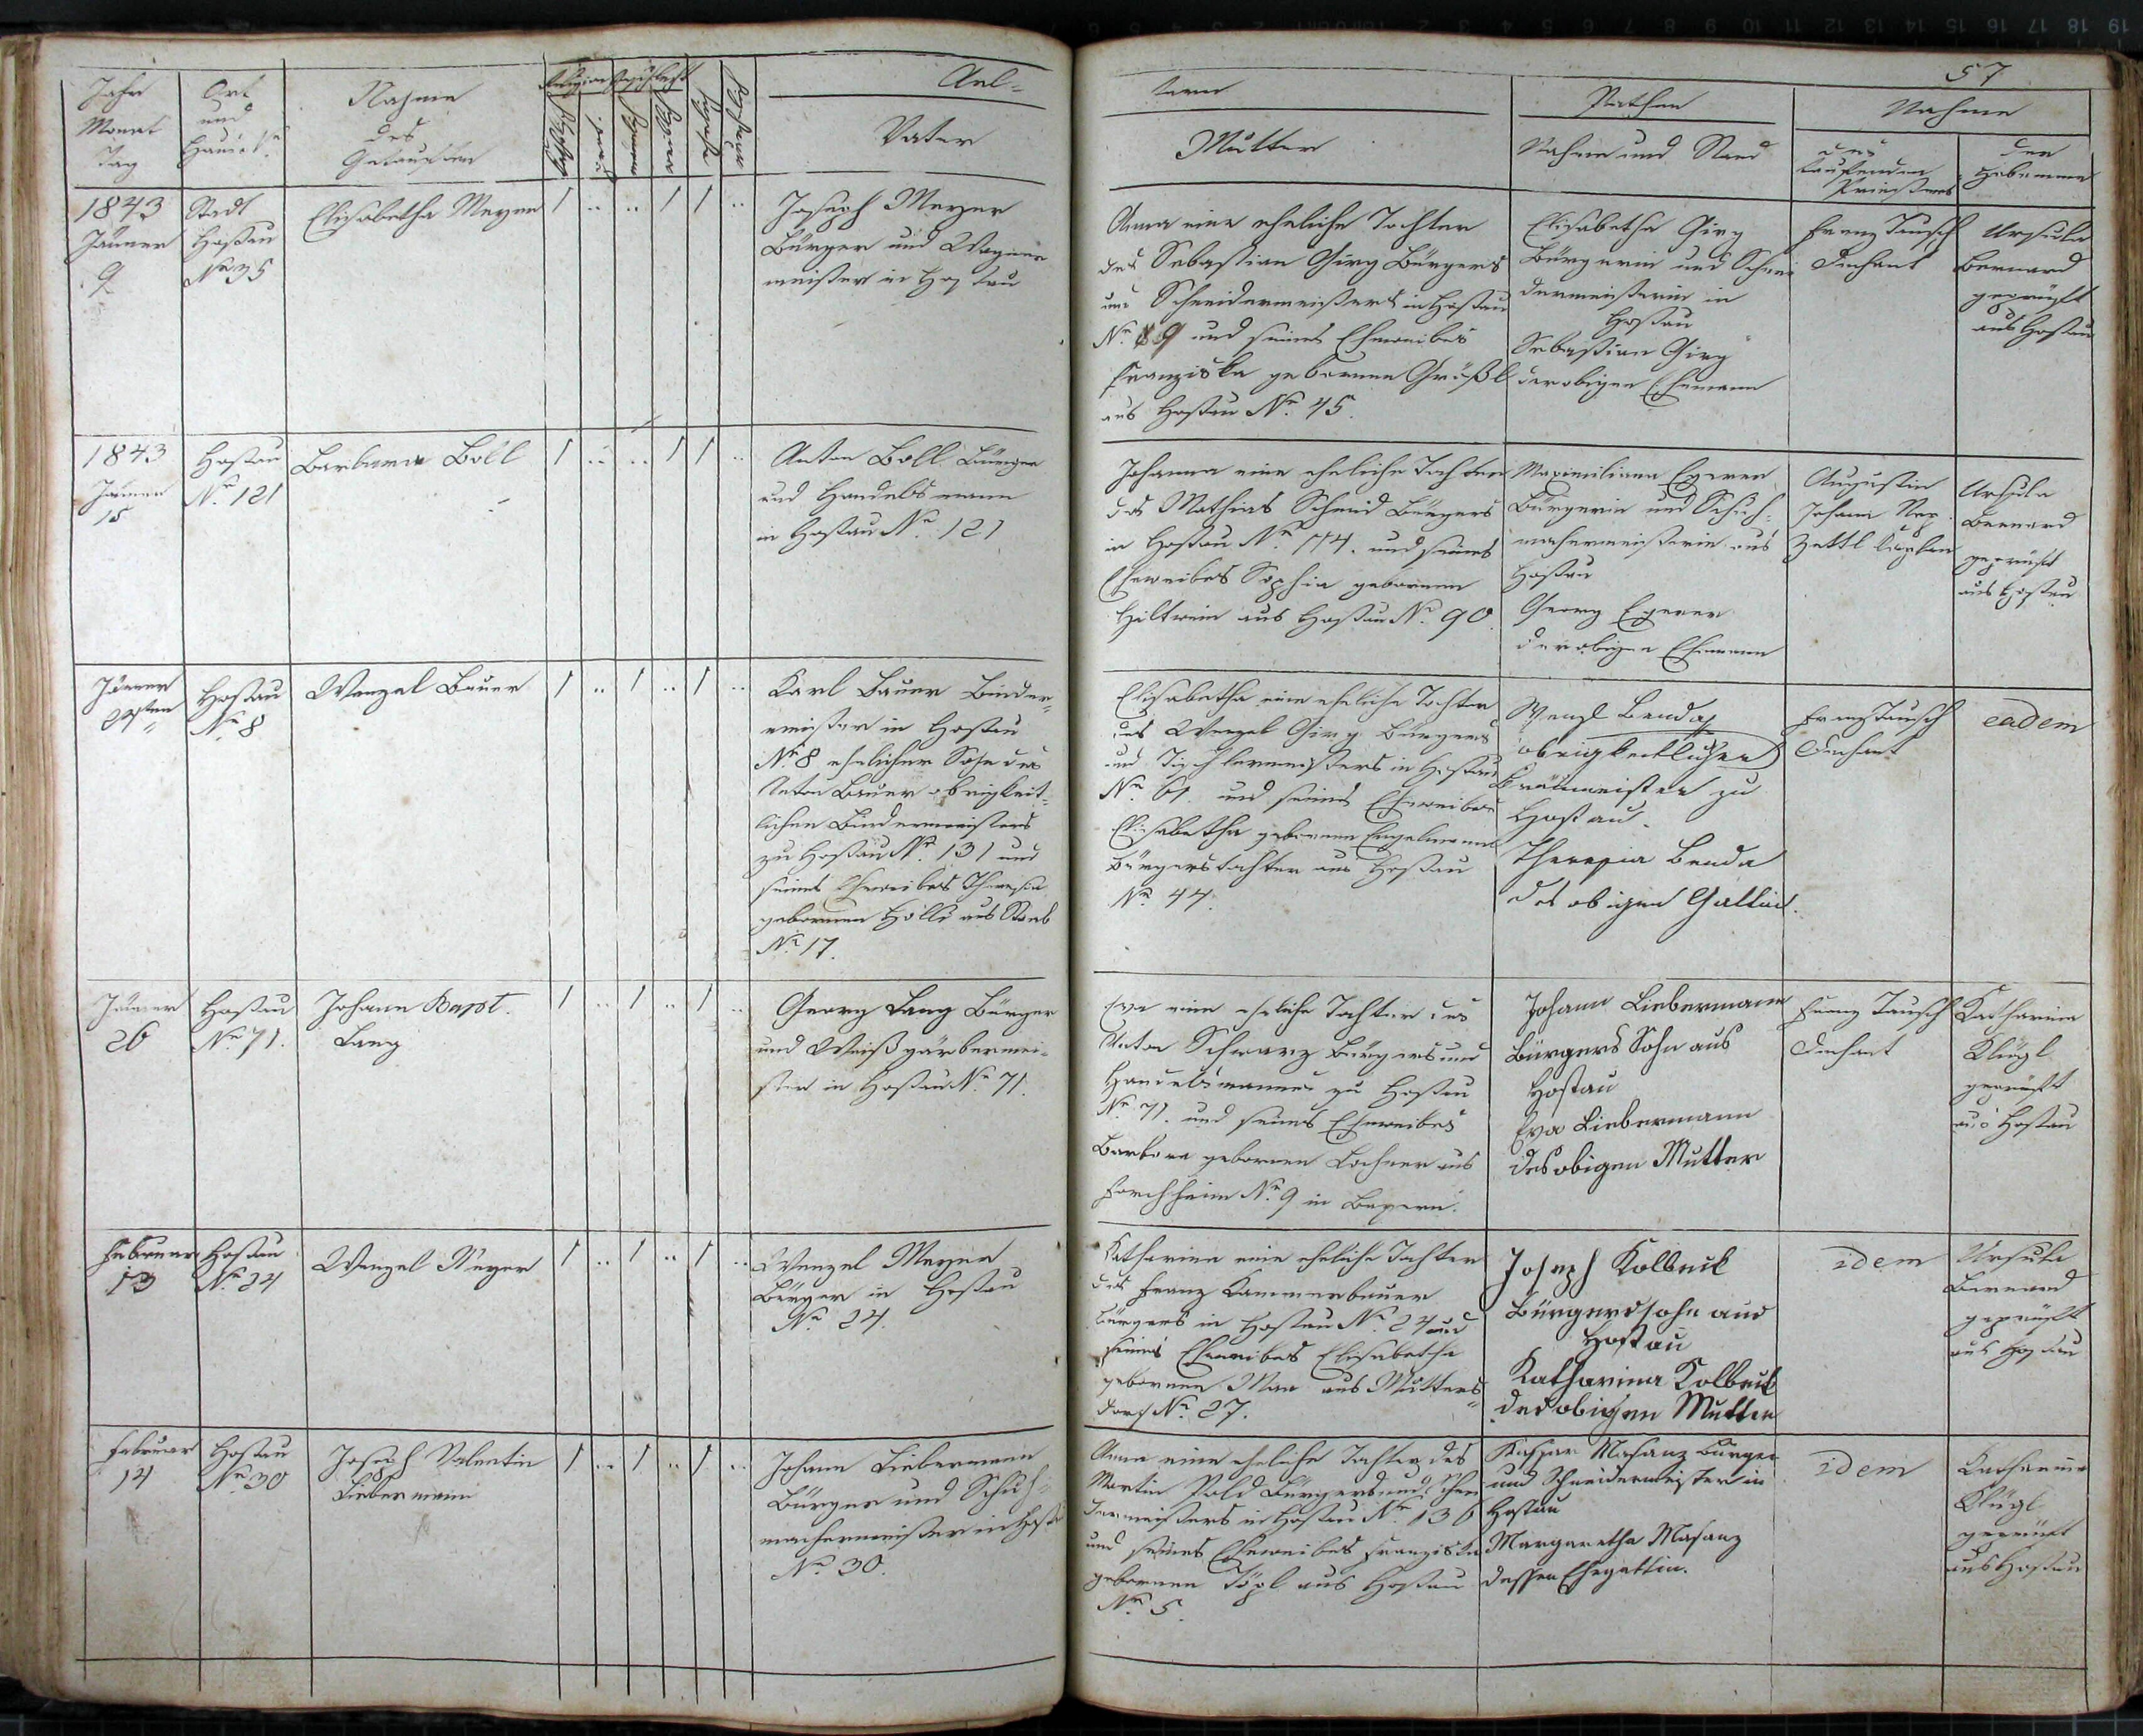 57
Jahr
Monat
Tag
Ort
und
Haus Nr.
Nahme
des
Getauften
Religion
Geschlecht
Ael-
Vater
tern
Mutter
Pathen
Nahme und Stand
Nahme
des
taufenden
Priesters
der
Hebamme
1843
Jänner
9
Stadt
Hostau
Nro 35
Elisabetha Meyer
1 .. .. 1 1 ..
Joseph Meyer
Bürger und Wagner
meister in Hostau
Anna eine eheliche Tochter
des Sebastian Girg Bürgers
und Schneidermeisters in Hostau
und seines Eheweibes
Franziska gebornen
aus Hostau Nro 45.
Elisabetha Girg
Bürgerin und Schnei
dermeisterin in
Hostau
Sebastian Girg
der obigen Ehemann
Franz Tausch
Dechant
Ursula
Bernard
geprüft
aus Hostau
1843
Jänner
15
Hostau
Nro 121
Barbara Böll
1 .. .. 1 1 ..
Anton Böll Bürger
und Handelsmann
in Hostau Nro 121
Johanna eine eheliche Tochter
des Mathias Schmid Bürgers
in Hostau Nro 114. und seines
Eheweibes Sophia gebornen
aus Hostau Nro 90.
Maximiliana Egerer
Bürgerin und Schuh-
machermeisterin aus
Hostau
Georg Egerer
der obigen Ehemann
Augustin
Johann Nep.
Zettl Kaplan
Ursula
Bernard
geprüft
aus Hostau
Jänner
Hostau
Nro 8
Wenzel Bauer
1 .. 1 .. 1 ..
Karl Bauer Binder-
meister in Hostau
Nro 8 ehelicher Sohn des
Anton Bauer obrigkeit-
lichen Bindermeisters
zu Hostau Nro 131 und
seines Eheweibes Theresia
gebornen Hölli aus Staab
Nro 17.
Elisabetha eine eheliche Tochter
des Wenzel Girg Bürgers
und Tischlermeisters in Hostau
Nro 61. und seines Eheweibes
Elisabetha gebornen Engelmann
Bürgerstochter aus Hostau
Nro 44.
Wenzl Benda
obrigkeitlicher
Bräumeister zu
Hostau.
Theresia Benda
des obigen Gattin.
Franz Tausch
Dechant
eadem
Jänner
26
Hostau
Nro 71.
Johann Bapt.
Lang
1 .. 1 .. 1 ..
Georg Lang Bürger
und Weißgärbermei-
ster in Hostau Nro 71.
Eva eine eheliche Tochter des
Anton Schwarz Bürgers und
Handelsmannes zu Hostau
Nro 71. und seines Eheweibes
Barbara gebornen Lochner aus
Forchheim Nro 9 in Bayern.
Johann Liebermann
Bürgers Sohn aus
Hostau
Eva Liebermann
des obigen Mutter
Franz Tausch
Dechant
Katharina
Klügl
geprüft
aus Hostau
Februar
13
Hostau
Nro 24
Wenzel Meyer
1 .. 1 .. 1 ..
Wenzel Meyer
Bürger in Hostau
Nro 24.
Katharina eine eheliche Tochter
des Franz Kammerbauer
Bürgers in Hostau Nro 24 und
seines Eheweibes Elisabetha
gebornen aus Mutters-
dorf Nro 27.
Joseph Kolbeck
Bürgerssohn aus
Hostau
Katharina Kolbeck
des obigen Mutter
idem
Ursula
Bernard
geprüft
aus Hostau
Februar
14
Hostau
Nro 30
Joseph Valentin
Liebermann
1 .. 1 .. 1 ..
Johann Liebermann
Bürger und Schuh-
machermeister in Hostau
Nro 30.
Anna eine eheliche Tochter des
Martin Bürgers und Schnei
dermeisters in Hostau Nro 136
und seines Eheweibes Franziska
gebornen Töpl aus Hostau
Nro 5.
Kaspar Masanz Bürger
und Schneidermeister in
Hostau
Margaretha Masanz
dessen Ehegattin.
idem
Katharina
Klügl
geprüft
aus Hostau